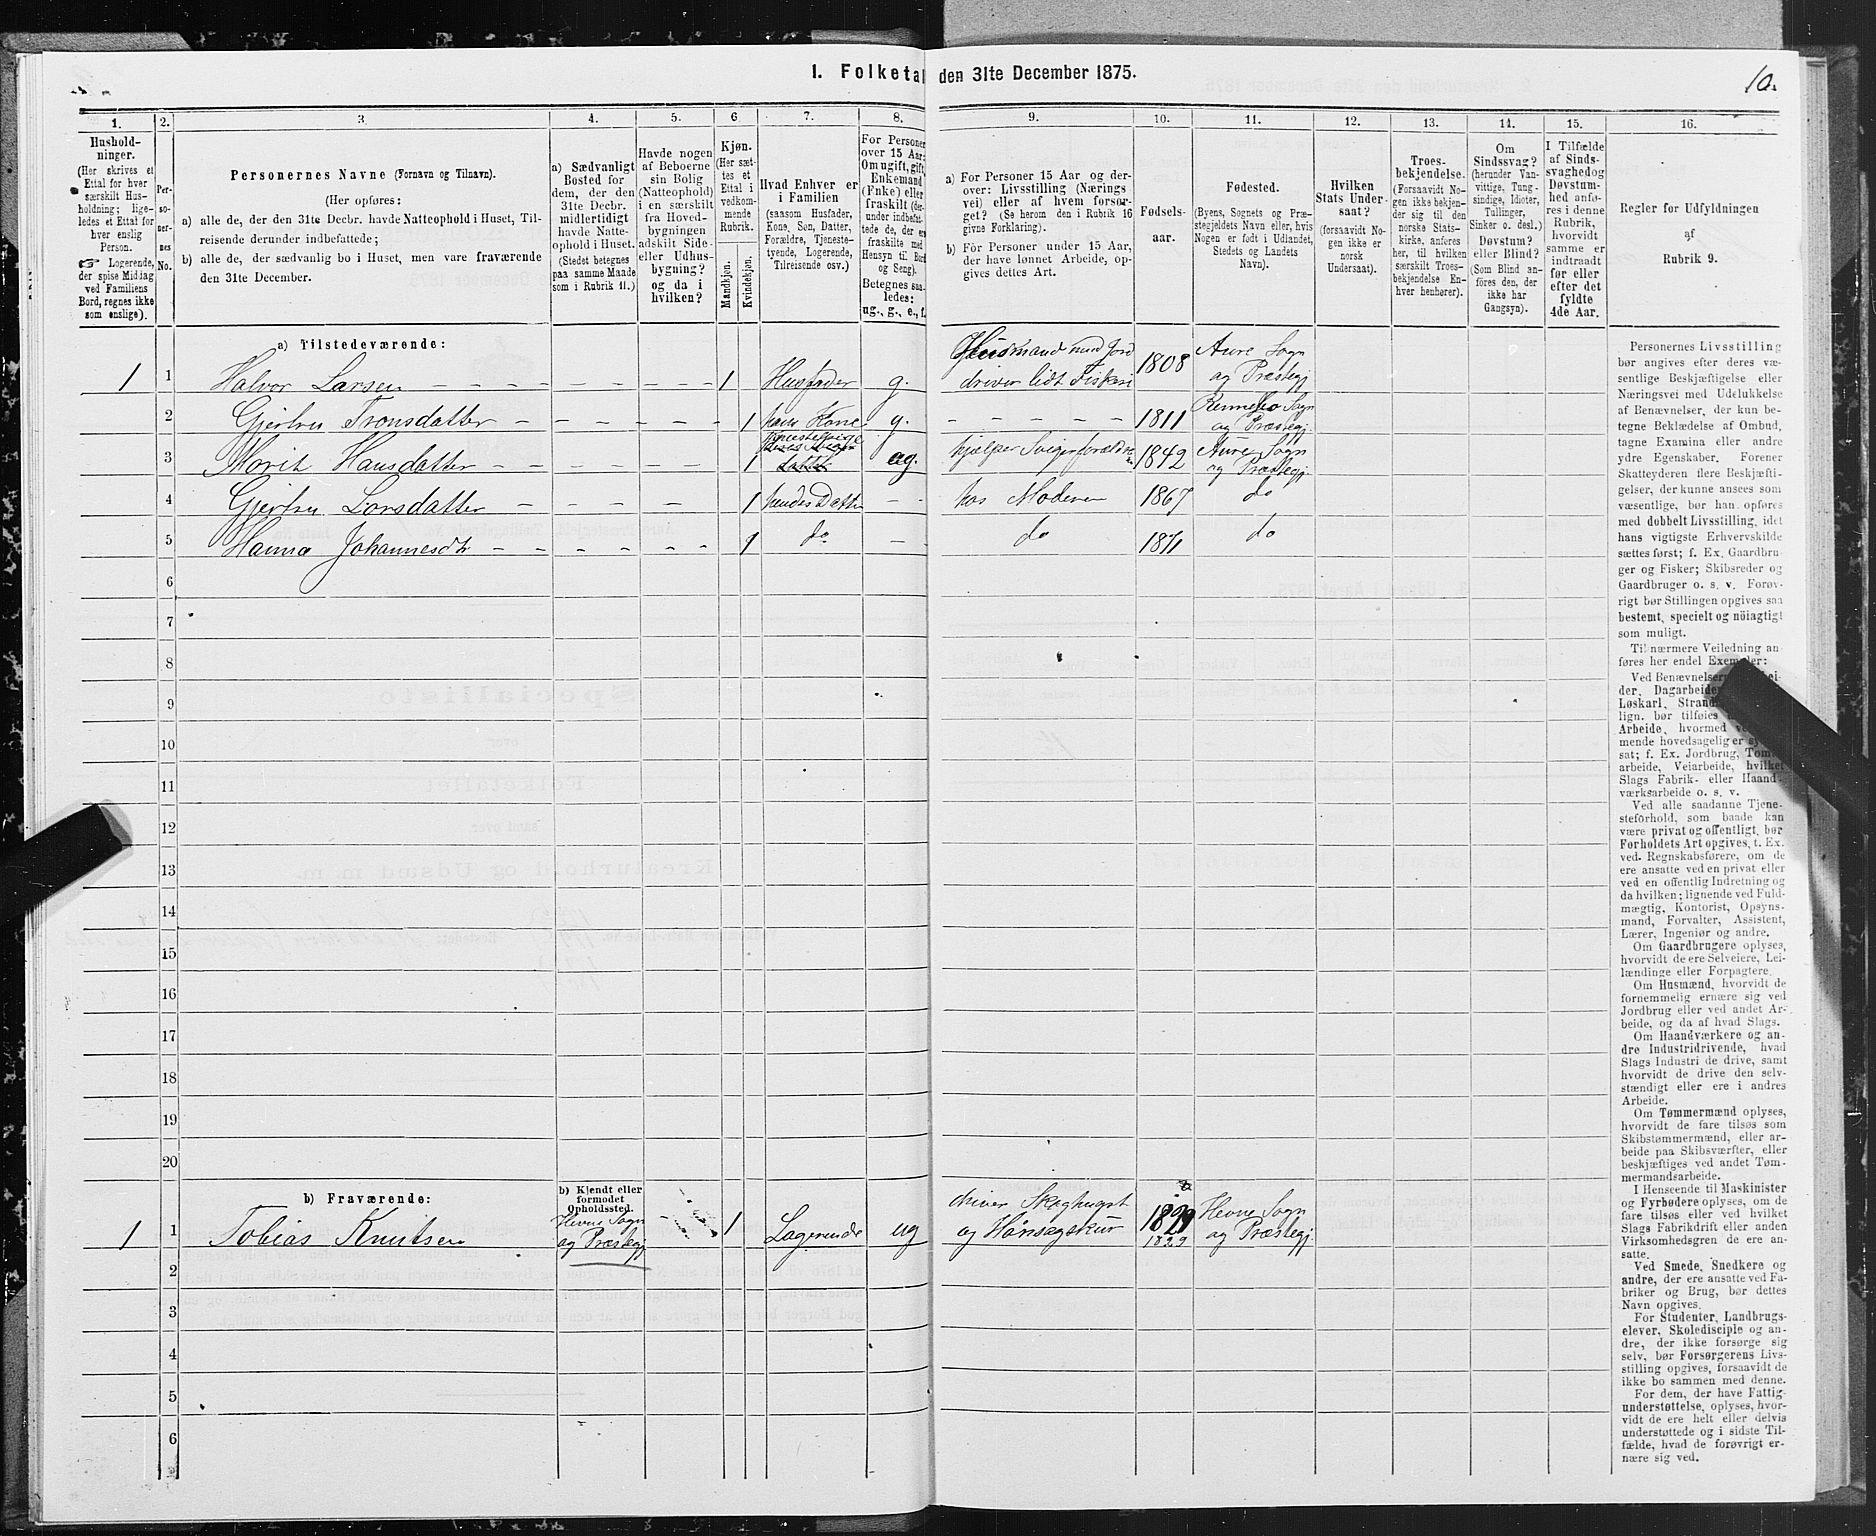 1. Folketal den 31te December 1875.
10.
1.
Hushold-
ninger.
(Her skrives et
Ettal for hver
særskilt Hus-
holdning; lige-
ledes et Ettal for
hver enslig
Person.
☞ Logerende,
der spise Middag
ved Familiens
Bord, regnes ikke
som enslige).
2.
Per-
so-
ner-
nes
No.
3.
Personernes Navne (Fornavn og Tilnavn).
(Her opføres:
a) alle de, der den 31te Decbr. havde Natteophold i Huset, Til-
reisende derunder indbefattede;
b) alle de, der sædvanlig bo i Huset, men vare fraværende
den 31te December.
4.
a) Sædvanligt
Bosted for
dem, der den
31te Decbr.
midlertidigt
havde Natte-
ophold i Huset.
(Stedet betegnes
paa samme Maade
som i Rubrik 11.)
5.
Havde nogen
af Beboerne
sin Bolig
(Natteophold)
i en særskilt
fra Hoved-
bygningen
adskilt Side-
eller Udhus-
bygning?
og da i
hvilken?
6
Kjøn.
(Her sæt-
tes et
Ettal i
vedkom-
mende
Rubrik.
Mandkjøn.
Kvindekjøn.
7.
Hvad Enhver er
i Familien
(saasom Husfader,
Kone, Søn, Datter,
Forældre, Tjeneste-
tyende, Logerende,
Tilreisende osv.)
8.
For Personer
over 15 Aar:
Om ugift, gift,
Enkemand
(Enke) eller
fraskilt (der-
under indbefat-
tede de, der er
fraskilte med
Hensyn til Bord
og Seng).
Betegnes saa-
ledes:
ug., g., e., f.
9.
a) For Personer 15 Aar og der-
over: Livsstilling (Nærings
vei) eller af hvem forsør-
get? (Se herom den i Rubrik 16
givne Forklaring).
b) For Personer under 15 Aar,
der have lønnet Arbeide, op-
gives dettes Art.
10.
Fødsels-
aar.
11.
Fødested.
(Byens, Sognets og Præ-
stegjeldets Navn eller, hvis
Nogen er født i Udlandet,
Stedets og Landets
Navn).
12.
Hvilken
Stats Under-
saat?
(forsaavidt No-
gen ikke er
norsk
Undersaat).
13.
Troes-
bekjendelse.
(Forsaavidt No-
gen ikke bekjen-
der sig til den
norske Stats-
kirke, anføres
her, til hvilken
særskilt Troes-
bekjendelse En-
hver henhører).
14.
Om
Sindssvag?
(herunder Van-
vittige, Tung-
sindige, Idioter,
Tullinger,
Sinker o. desl.)
Døvstum?
eller Blind?
(Som Blind an-
føres den, der
ikke har
Gangsyn).
15.
I Tilfælde
af Sinds-
svaghed og
Døvstum-
hed anfø-
res i denne
Rubrik,
hvorvidt
samme er
indtraadt
før eller
efter det
fyldte
4de Aar.
16.
Regler for Udfyldningen
af
Rubrik 9.
a) Tilstedeværende:
1 1 Halvor Larsen 1 Husfader g. Husmand med Jord driver lidt Fiskeri 1808 Aure Sogn og Præstegj
2 Gjertru Tronsdatter 1 hans Kone g. 1811 Rennebo Sogn og Præstegj
3 Marit Hansdatter 1 ug. hjælper Svigerforældrene 1842 Aure Sogn og Præstegj
4 Gjertru Larsdatter 1 hendes Datter hos Moderen 1867 do
5 Hanna Johannesdt 1 do do 1871 do
6
7
8
9
10
11
12
13
14
15
16
17
18
19
20
b) Fraværende:
b) Kjendt eller
formodet
Opholdssted.
1 1 Tobias Knutsen Hevne Sogn og Præstegj 1 Logerende ug driver Skoghugst og Haansagskur 1829 1829 Hevne Sogn og Præstegj
2
3
4
5
6
Personernes Livsstilling
bør angives efter deres væ-
sentlige Beskjæftigelse eller
Næringsvei med Udelukkelse
af Benævnelser, der kun be-
tegne Beklædelse af Ombud,
tagne Examina eller andre
ydre Egenskaber. Forener
Skatteyderen flere Beskjæfti-
gelser, der kunne ansees som
væsentlige, bør han opføres
med dobbelt Livsstilling, idet
hans vigtigste Erhvervskilde
sættes først; f. Ex. Gaardbru-
ger og Fisker; Skibsreder og
Gaardbruger o. s. v. Forøv-
rigt bør Stillingen opgives saa
bestemt, specielt og nöiagtigt
som muligt.
Til nærmere Veiledning an-
føres her endel Exempler:
Ved Benævnelserne
der, Dagarbeider
Løskarl, Strand
lign. bør tilføies
Arbeide, hvormed
mende hovedsagelig er sys
sat; f. Ex. Jordbrug, Tom
arbeide, Veiarbeide, hvilket
Slags Fabrik- eller Haand-
værksarbeide o. s. v.
Ved alle saadanne Tjene-
steforhold, som baade kan
være privat og offentligt, bør
Forholdets Art opgives, f. Ex.
ved Regnskabsførere, om de
ere ansatte ved en privat eller
ved en offentlig Indretning og
da hvilken; lignende ved Fuld-
mægtig, Kontorist, Opsyns-
mand, Forvalter, Assistent,
Lærer, Ingeniør og andre.
Om Gaardbrugere oplyses,
hvorvidt de ere Selveiere, Lei-
lændinge eller Forpagtere.
Om Husmænd, hvorvidt de
fornemmelig ernære sig ved
Jordbrug eller ved andet Ar-
beide, og da af hvad Slags.
Om Haandværkere og an-
dre Industridrivende, hvad
Slags Industri de drive, samt
hvorvidt de drive den selv-
stændigt eller ere i andres
Arbeide.
Om Tømmermænd oplyses,
hvorvidt de fare tilsøs som
Skibstømmermænd, eller ar-
beide paa Skibsværfter, eller
beskjæftiges ved andet Tøm-
mermandsarbeide.
I Henseende til Maskinister
og Fyrbødere oplyses, om de
fare tilsøs eller ved hvilket
Slags Fabrikdrift eller anden
Virksomhedsgren de ere an-
satte.
Ved Smede, Snedkere og
andre, der ere ansatte ved Fa-
briker og Brug, bør dettes
Navn opgives.
For Studenter, Landbrugs-
elever, Skoledisciple og an-
dre, der ikke forsørge sig
selv, bør Forsørgerens Livs-
stilling opgives, forsaavidt de
ikke bo sammen med denne.
For dem, der have Fattig-
understøttelse, oplyses, hvor-
vidt de ere helt eller delvis
understøttede og i sidste Til-
fælde, hvad de forøvrigt er-
nære sig ved.